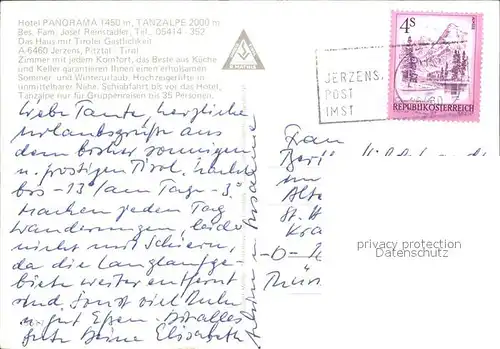 Hotel PANORAMA 1450 m, TANZALPE 2000 m
Bes. Fam. Josef Reinstadler, Tel. 05414 - 352
Das Haus mit Tiroler Gastlichkeit
A-6460 Jerzens, Pitztal - Tirol
Zimmer mit jedem Komfort, das Beste aus Küche
und Keller garantieren Ihnen einen erholsamen
Sommer- und Winterurlaub. Hochzeigerlifte in
unmittelbarer Nähe. Schiabfahrt bis vor das Hotel,
Tanzalpe nur für Gruppenreisen bis 35 Personen.
4S
REPUBLIK ÖSTERREICH
JERZENS,
POST
IMST
Liebe Tante, herzliche
Urlaubsgrüße aus
dem bisher sonnigen
u. frostigen Tirol. Nachts
bis -13° am Tage -3°
Machen jeden Tag
Wanderungen, leider
nicht mit Schiern,
da die Langlaufge-
biete weiter entfernt
sind. Sonst viel Ruhe
u. gut Essen.
Gute Deine Elisabeth
Frau
im
Alte
St. H
-D-
privacy protection
Datenschutz